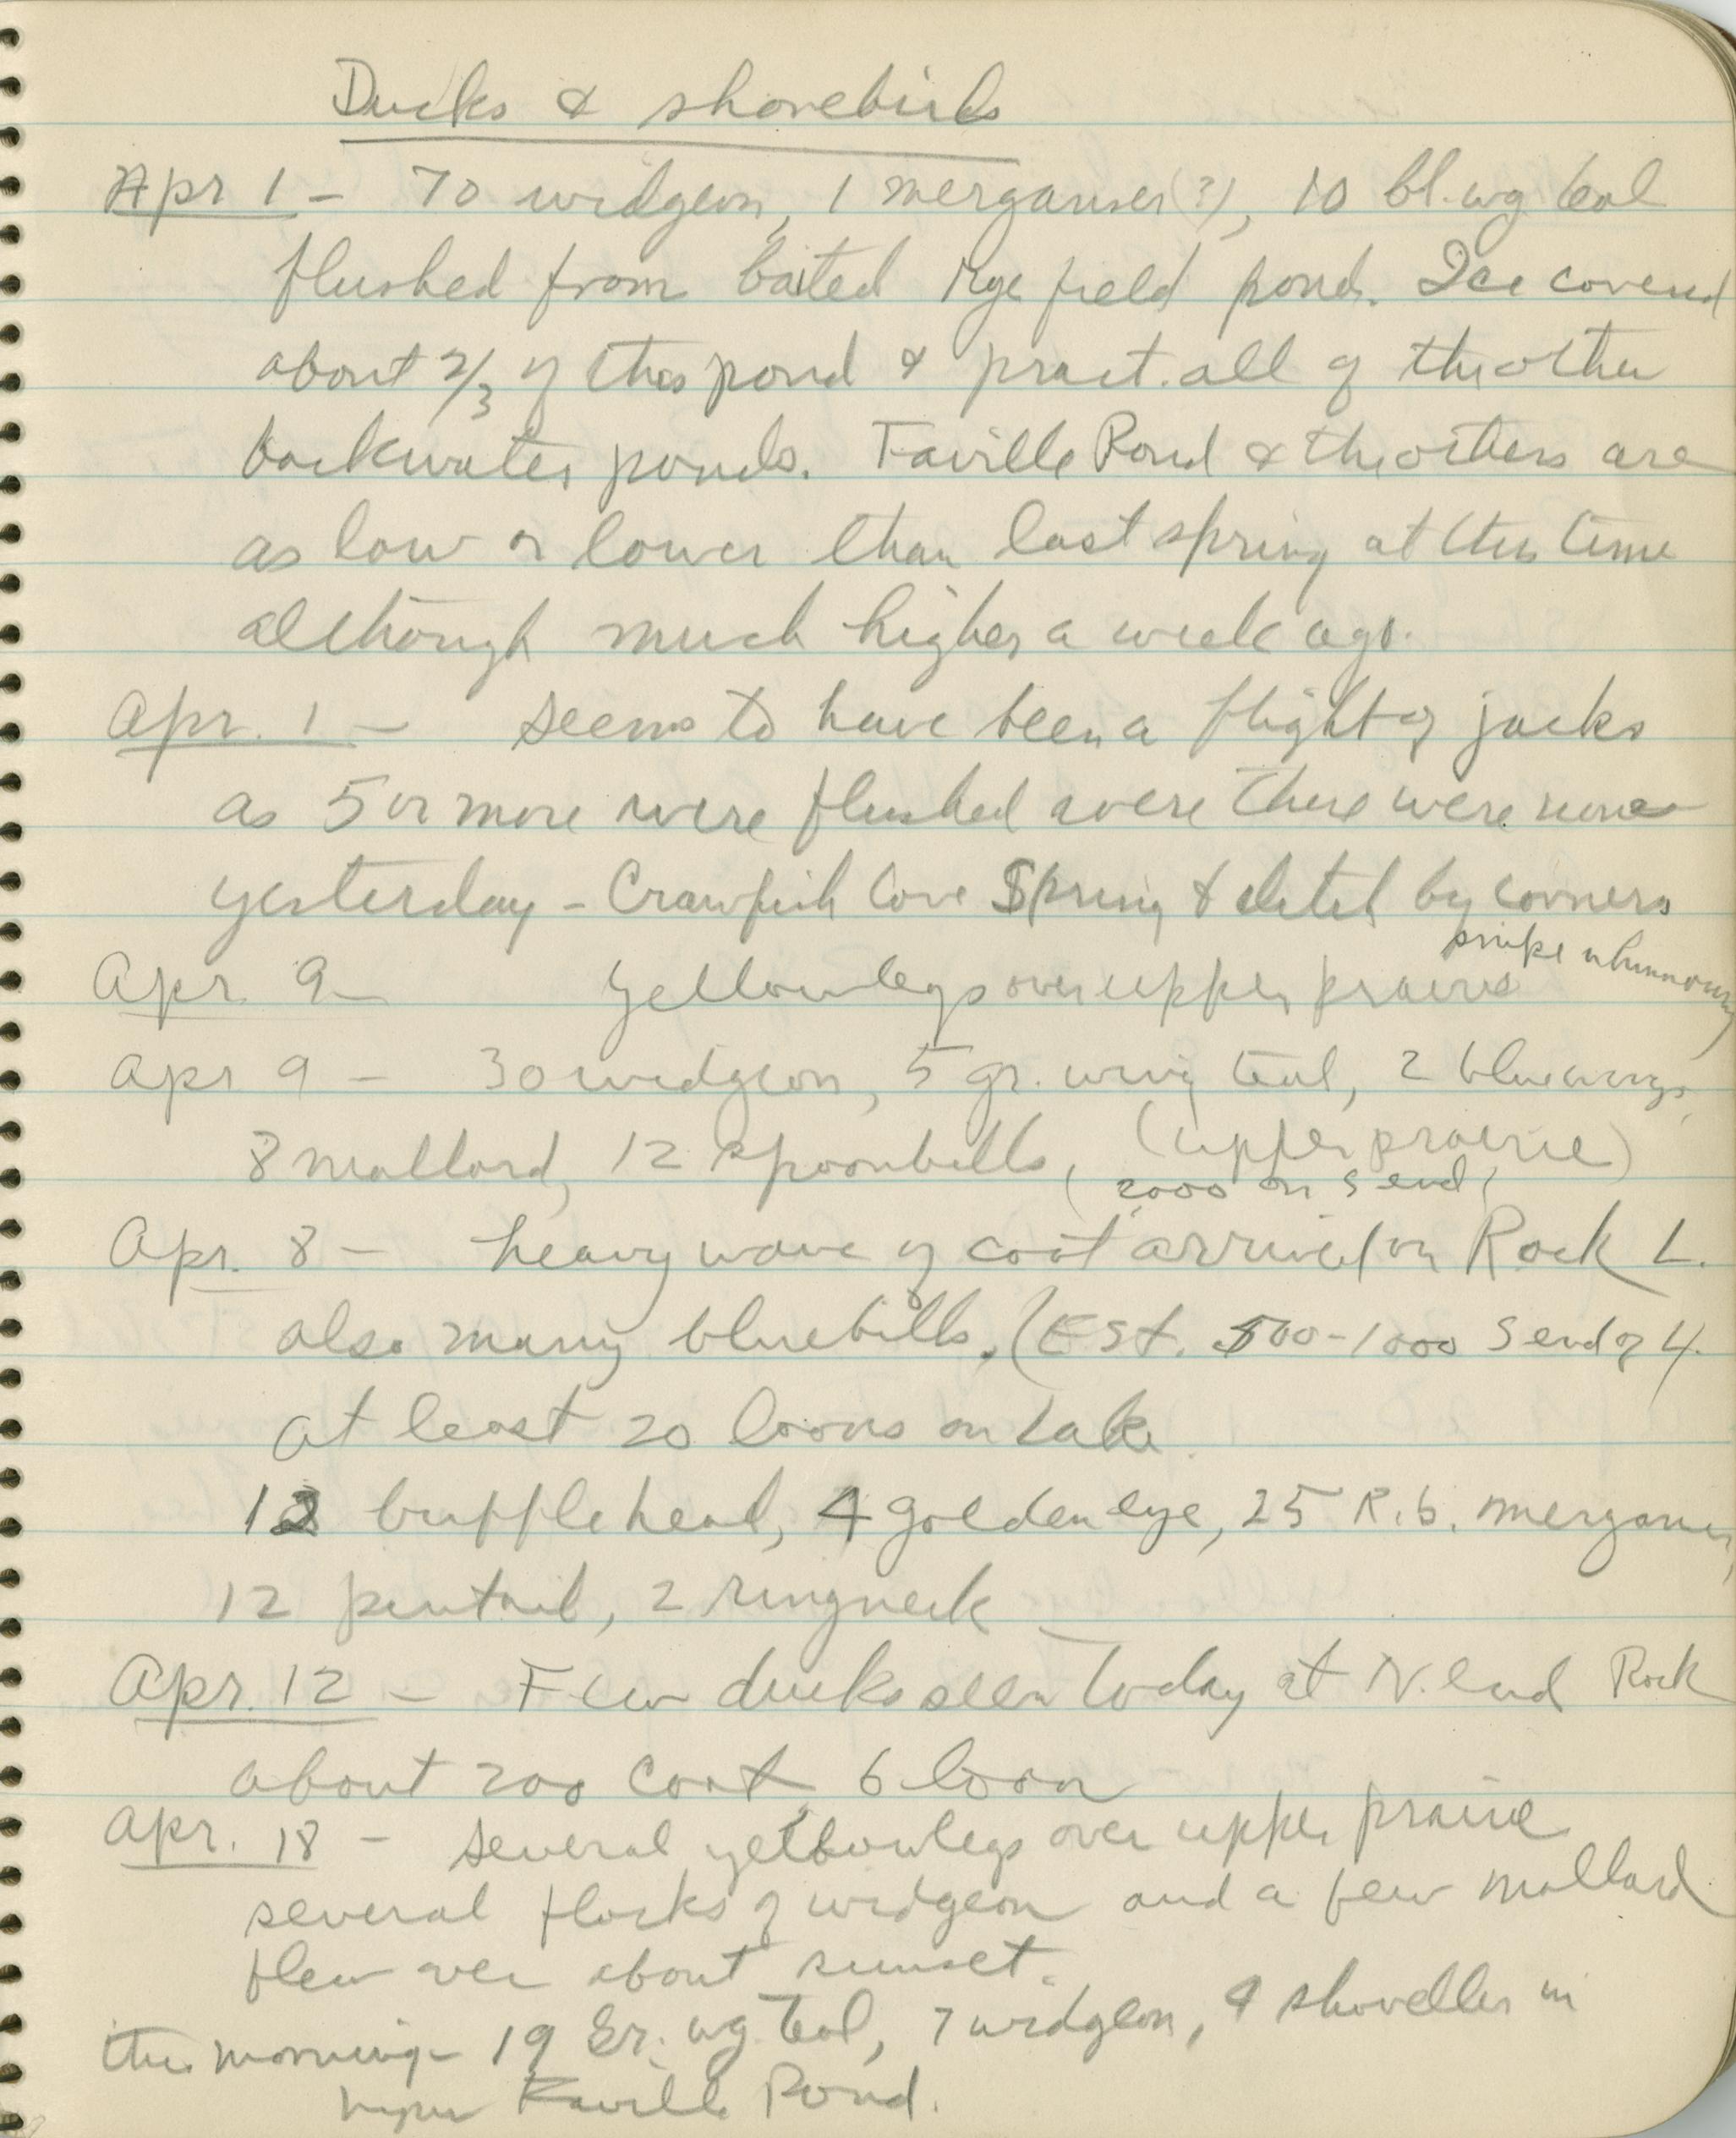 Ducks & shorebirds
Apr 1 - 70 widgeon, 1 merganser(?), 10 bl. wg teal
flushed from baited rye field pond. Ice covered
about 2/3 of this pond & pract. all of the other
backwater ponds. Faville Pond & the others are
as low or lower than last spring at this time
although much higher a week ago.
Apr. 1 - seems to have been a flight of jacks
as 5 or more were flushed were there were none
yesterday - Crawfish Cove Spring & ditch by corners
snipe whinnowing
Apr 9 - Yellowlegs over upper prairie
Apr 9 - 30 widgeon, 5 gr. wing teal, 2 bluewings,
8 mallard, 12 spoonbills, (upper prairie)
(2000 on S end)
Apr. 8 - heavy wave of coot arrived on Rock L.
also many bluebills. (Est. 500-1000 S end of L.
at least 20 loons on Lake
12 bufflehead, 4 goldeneye, 25 R.b. merganser,
12 pintail, 2 ringneck
Apr. 12 - Few ducks seen today at N. end Rock
about 200 coot, 6 loon
Apr. 18 - several yellowlegs over upper prairie
several flocks of widgeon and a few mallard
flew over about sunset.
this morning - 19 Gr. wg. teal, 7 widgeon, 9 shoveller in
upper Faville Pond.